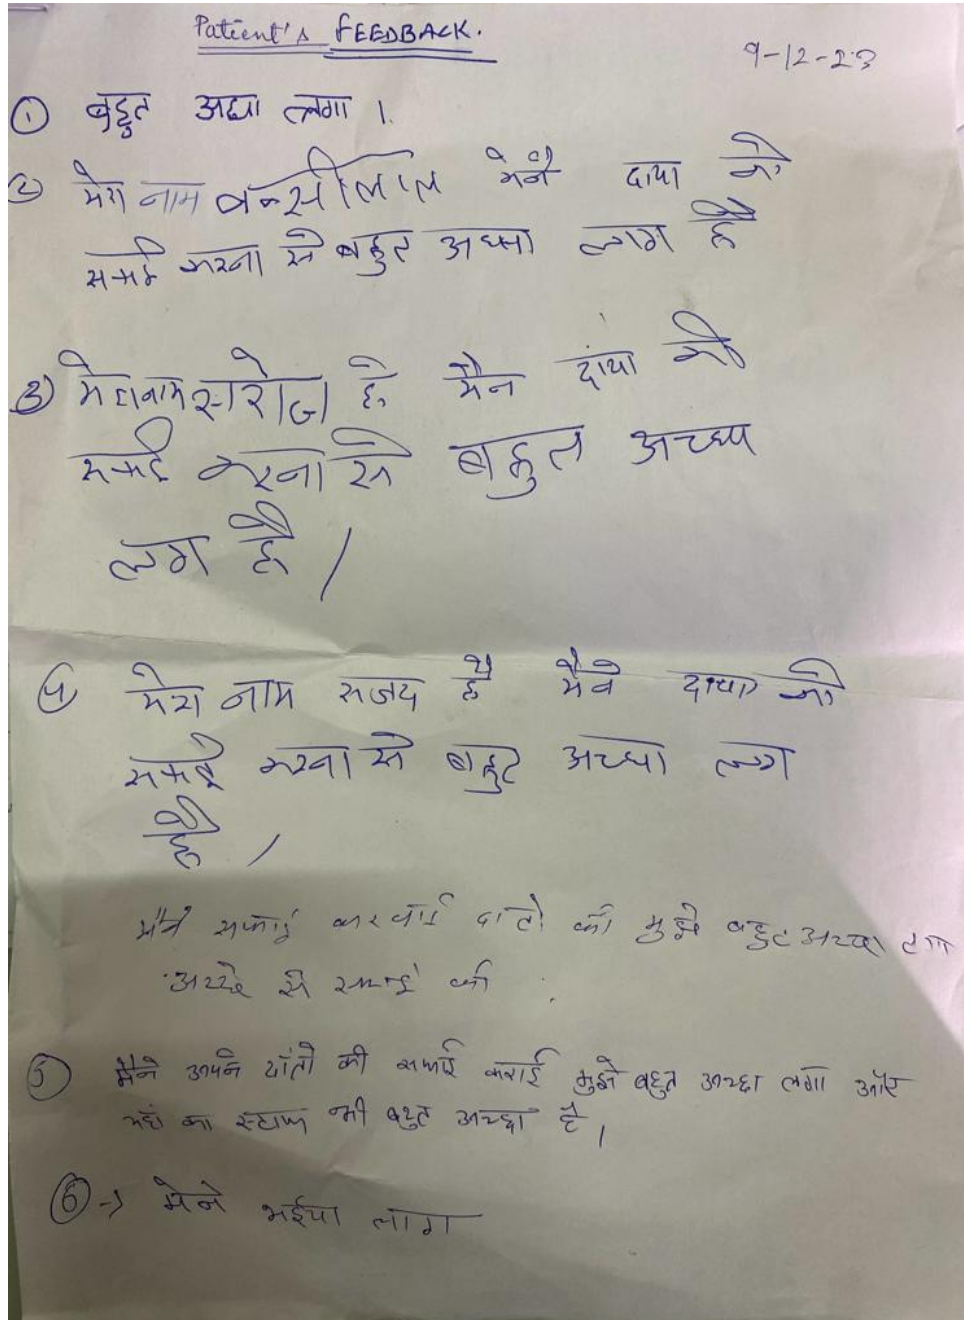 Patient's FEEDBACK.
9-12-23
① बहुत अछा लगा ।
② मेरा नाम बन्सीलाल मेने दाया की
सफाई करना से बहुत अच्सा लाग है
③ मेरा नाम सरोज है मैन दांया की
सफाई करना से बाहुत अच्छा
लग है /
④ मेरा नाम सजय है मैने दाया की
सफाई करना से बाहुट अच्छा लग
है /
मैने सफाई करवाई दातो की मुझे बहुत अच्छा लगा
अच्छे से सफाई की
⑤ मैने अपने दाँतो की सफाई कराई मुझे बहुत अच्छा लगा और
यहाँ का स्टाफ भी बहुत अच्छा है।
⑥ → मेने भईया लाग